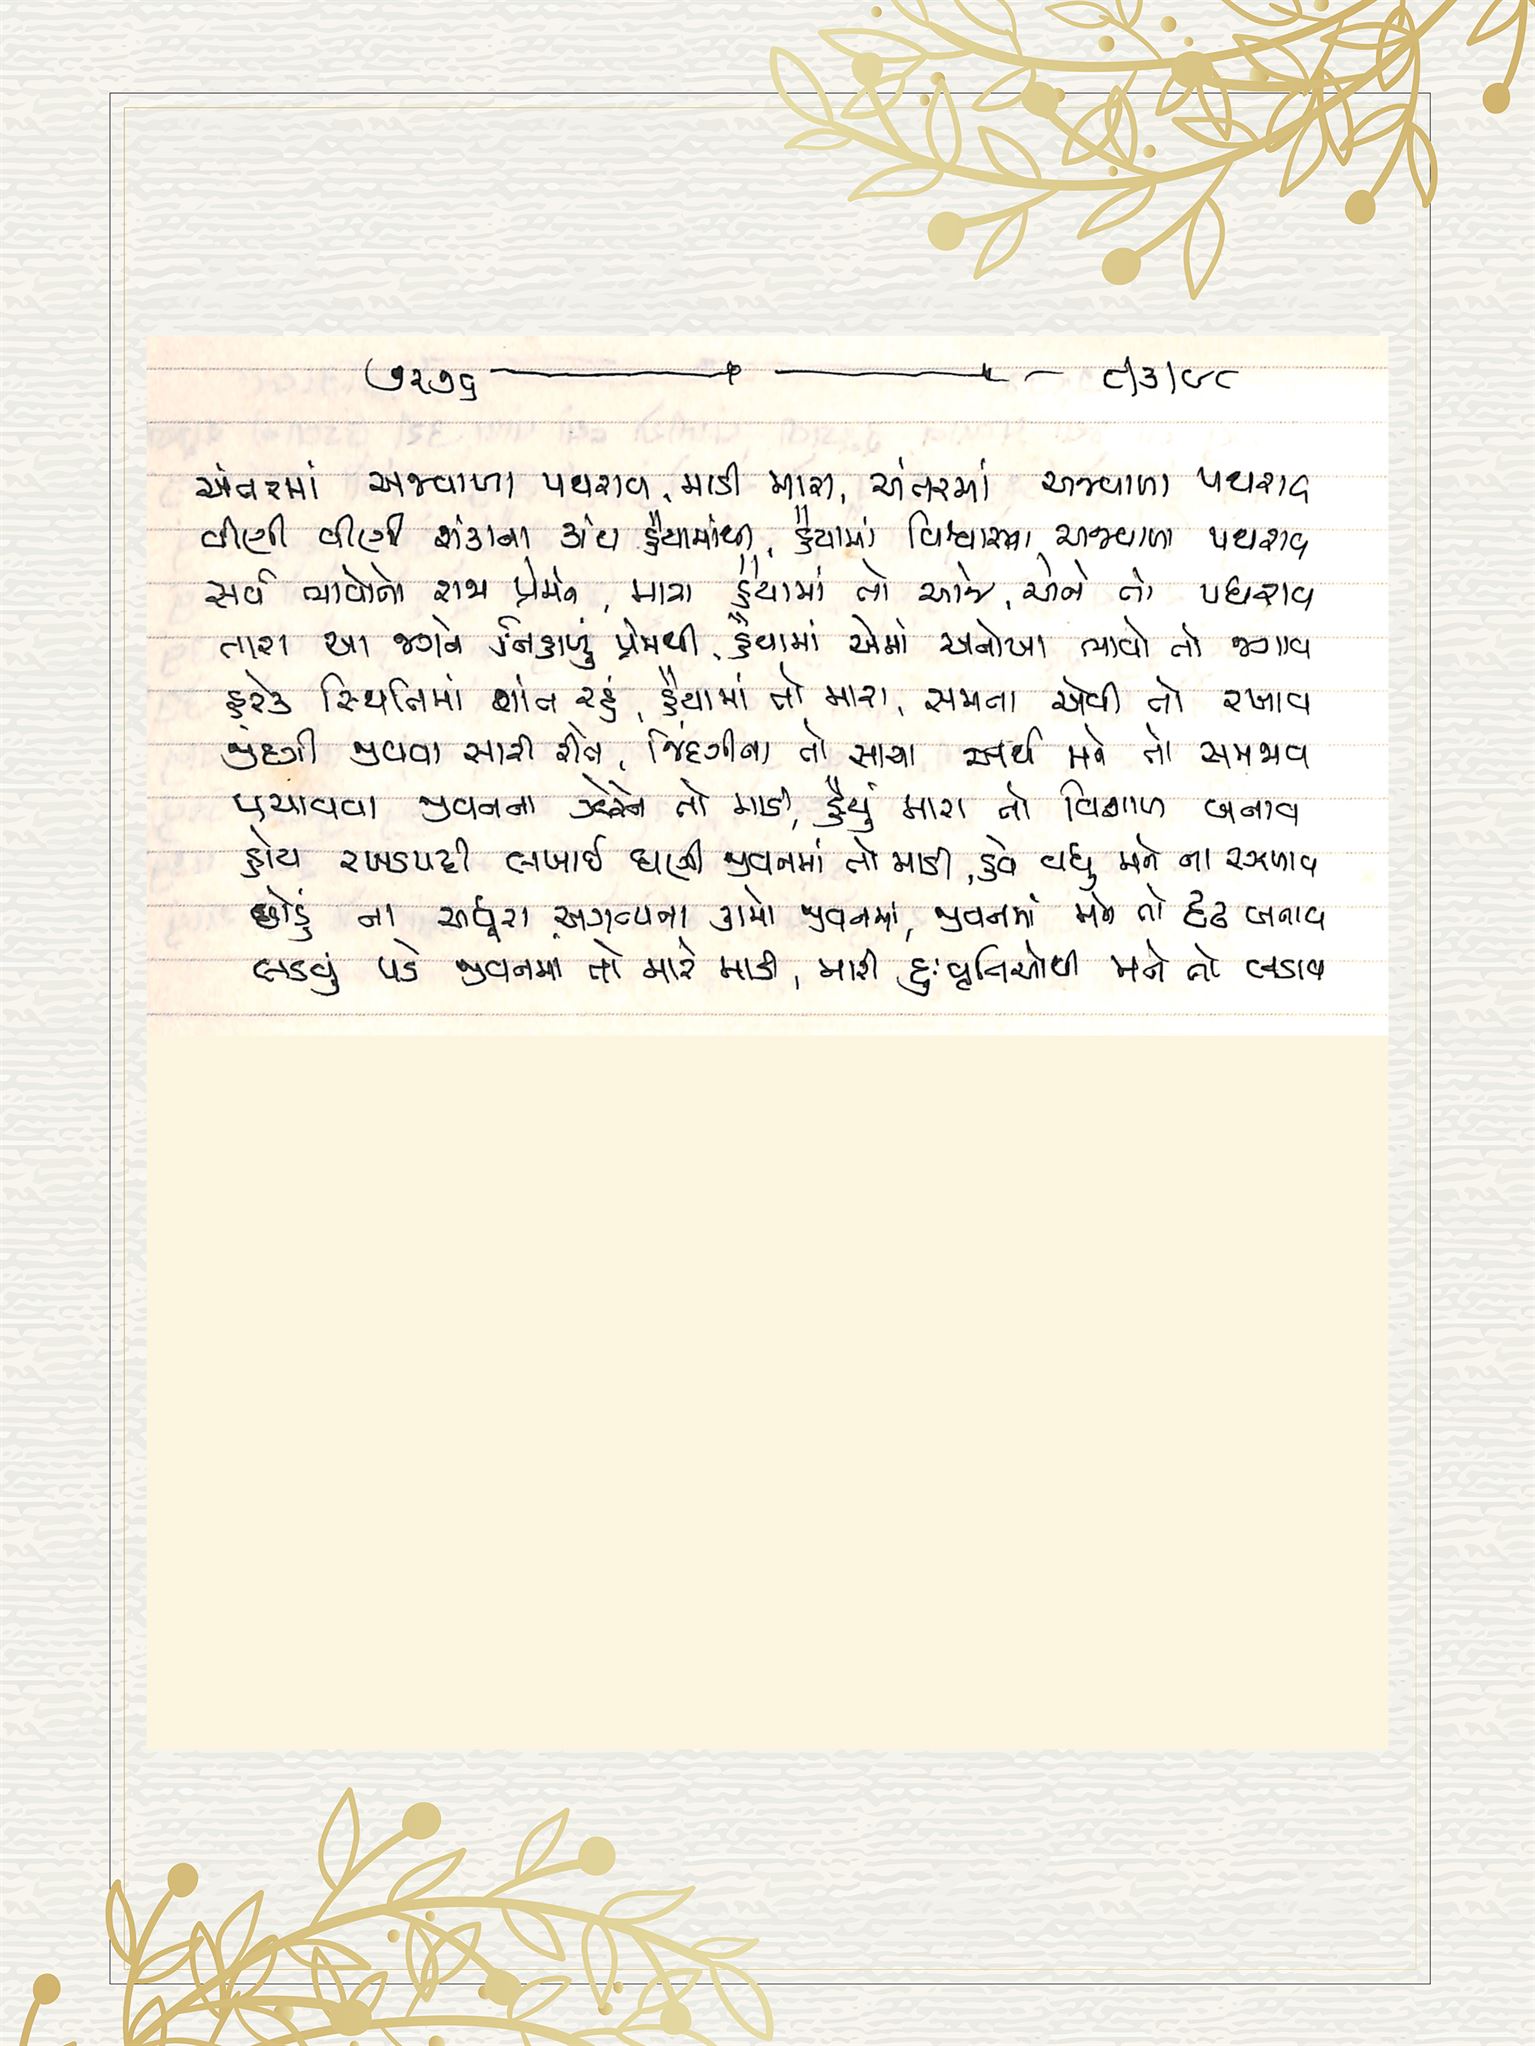 ૭૨૭૬ ૮/૩/૯૮
અંતરમાં અજવાળા પથરાવ, માડી મારા, અંતરમાં અજવાળા પથરાવ
વીણી વીણી શંકાના કાંટા હૈયામાંથી, હૈયામાં વિશ્વાસના અજવાળા પથરાવ
સર્વ ભાવોનો રાજા પ્રેમને, મારા હૈયામાં તો આજે, એને તો પધરાવ
તારા આ જગને નિહાળું પ્રેમથી, હૈયામાં એમાં અનોખા ભાવો તો જગાવ
હરેક સ્થિતિમાં શાંત રહું, હૈયામાં તો મારા, સમતા એવી તો રખાવ
જીંદગી જીવવા સારી રીતે, જિંદગીના તો સાચા અર્થ મને તો સમજાવ
પચાવવા જીવનના ઝેરને તો માડી, હૈયું મારા તો વિશાળ બનાવ
હોય રખડપટ્ટી લખાઈ ઘણી જીવનમાં તો માડી, હવે વધુ મને ના રઝળાવ
છોડું ના અધૂરા અગત્યના કામો જીવનમાં, જીવનમાં મને તો દૃઢ બનાવ
લડવું પડે જીવનમાં તો મારે માડી, મારી દુઃવૃત્તિઓથી મને તો લડાવ